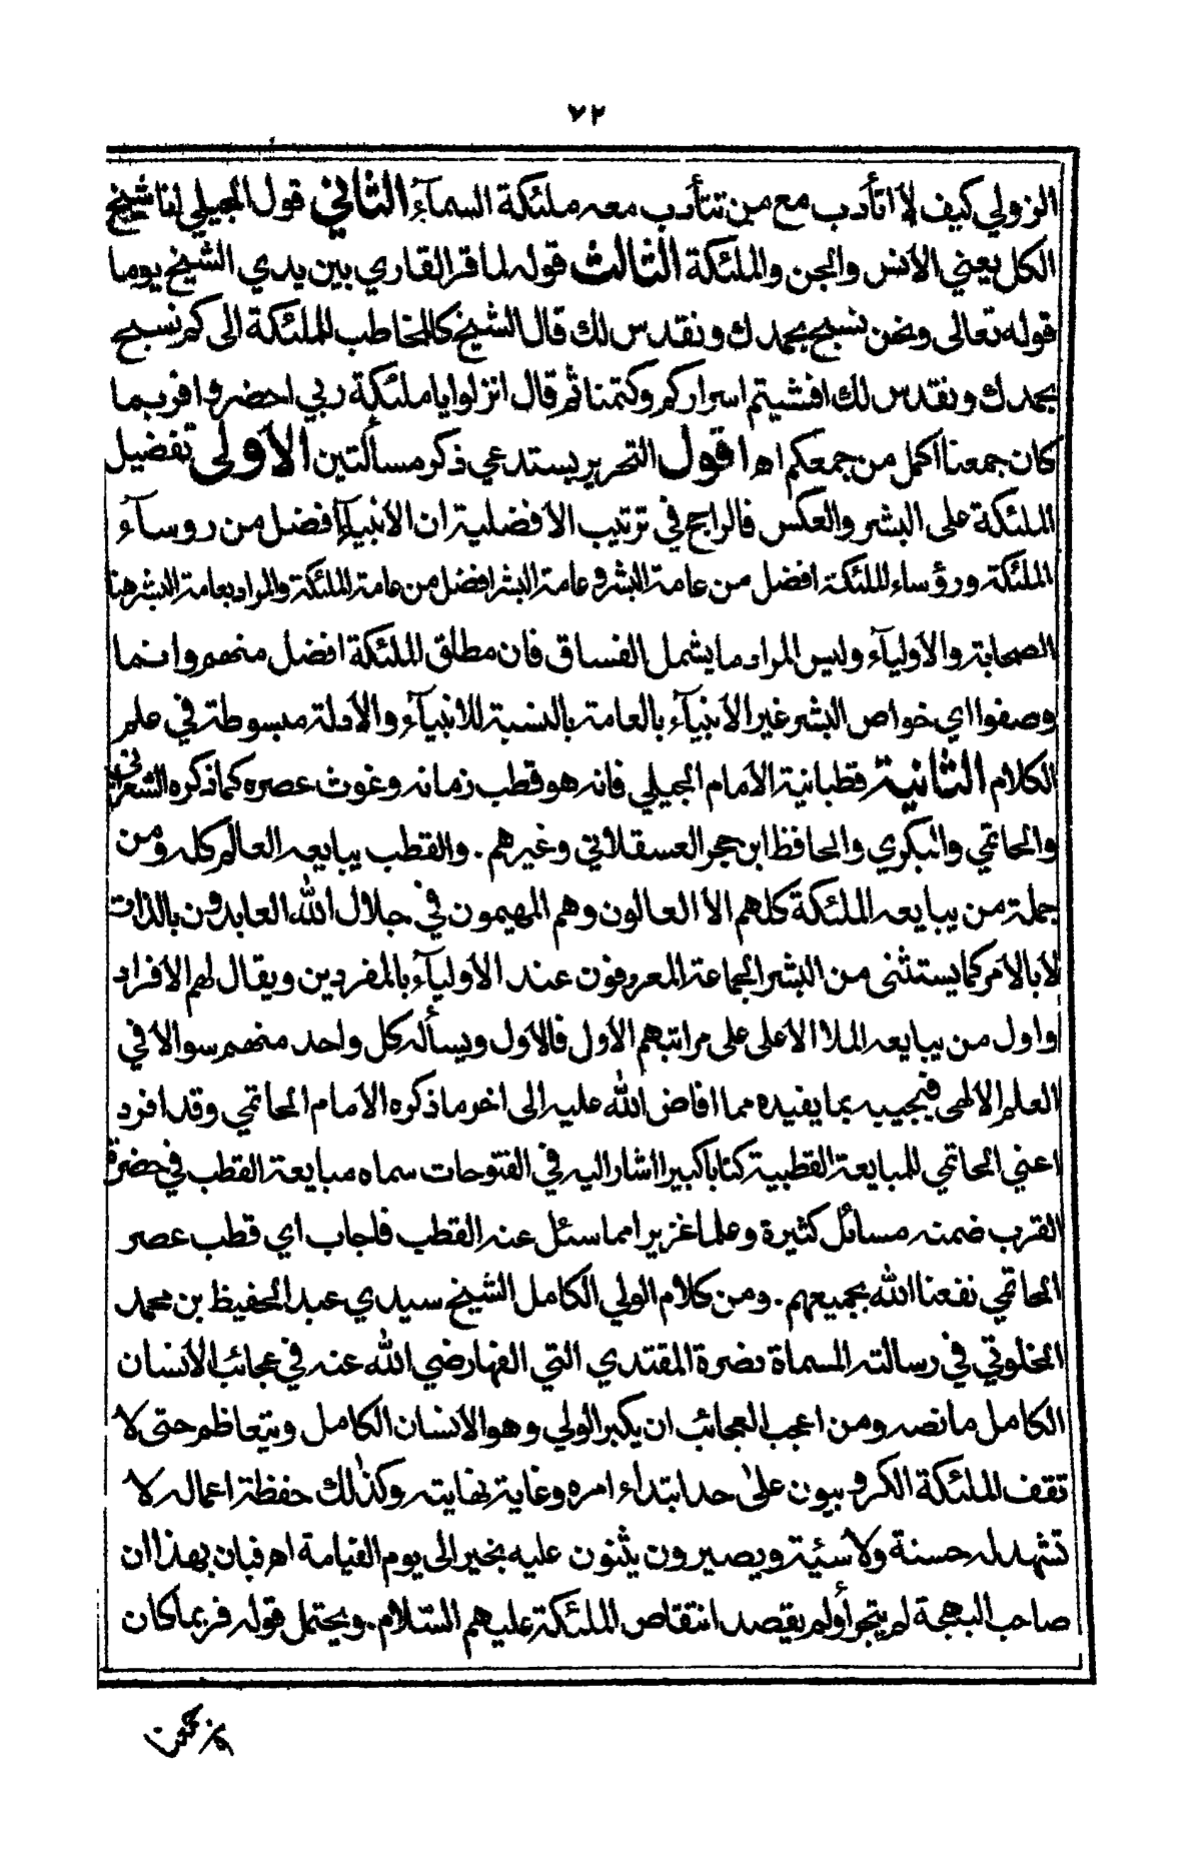 ٧٢
الزولي كيف لا اتأدب مع من تتأدب معه ملئكة السمآء الثاني قول الجيلي انا شيخ
الكل يعني الانس والجن والملئكة الثالث قوله لما قرا القاري بين يدي الشيخ يوما
قوله تعالى ونحن نسبح بحمدك ونقدس لك قال الشيخ كالمخاطب للملئكة الى كم نسبح
بحمدك ونقدس لك افشيتم اسراركم وكتمنا ثم قال انزلوا يا ملئكة ربي احضروا فربما
كان جمعنا اكمل من جمعكم اه اقول التحرير يستدعي ذكر مسألتين الاولى تفضيل
الملئكة على البشر والعكس فالراجح في ترتيب الافضلية ان الانبيآء افضل من روسآء
الملئكة ورؤساء الملئكة افضل من عامة البشر وعامة البشر افضل من عامة الملئكة والمراد بعامة البشر هنا
الصحابة والاوليآء وليس المراد ما يشمل الفساق فان مطلق الملئكة افضل منهم وانما
وصفوا اي خواص البشر غير الانبيآء بالعامة بالنسبة للانبيآء والادلة مبسوطة في علم
الكلام الثانية قطبانية الامام الجيلي فانه هو قطب زمانه وغوث عصره كما ذكره الشعراني
والحاتمي والبكري والحافظ ابن حجر العسقلاني وغيرهم . والقطب يبايعه العالم كله ومن
جملة من يبايعه الملئكة كلهم الا العالون وهم المهيمون في جلال الله العابدون بالذات
لا بالامر كما يستثنى من البشر الجماعة المعروفون عند الاوليآء بالمفردين ويقال لهم الافراد
واول من يبايعه الملا الاعلى على مراتبهم الاول فالاول ويسأله كل واحد منهم سوالا في
العلم الالهى فيجيبه بما يفيده مما افاض الله عليه الى اخر ما ذكره الامام الحاتمي وقد افرد
اعني الحاتمي للمبايعة القطبية كتابا كبيرا اشار اليه في الفتوحات سماه مبايعة القطب في حضرة
القرب ضمنه مسائل كثيرة وعلما غزيرا مما سئل عنه القطب فاجاب اي قطب عصر
الحاتمي نفعنا الله بجميعهم . ومن كلام الولي الكامل الشيخ سيدي عبد الحفيظ بن محمد
الخلوتي في رسالته المسماة نضرة المقتدي التي الفها رضي الله عنه في عجائب الانسان
الكامل ما نصه ومن اعجب العجائب ان يكبر الولي وهو الانسان الكامل ويتعاظم حتى لا
تقف الملئكة الكروبيون على حد ابتداء امره وغاية نهايته وكذلك حفظة اعماله لا
تشهد له حسنة ولا سيئة ويصيرون يثنون عليه بخير الى يوم القيامة اه فبان بهذا ان
صاحب البهجة لم يتجرأ ولم يقصد انتقاص الملئكة عليهم السلام . ويحتمل قوله فربما كان